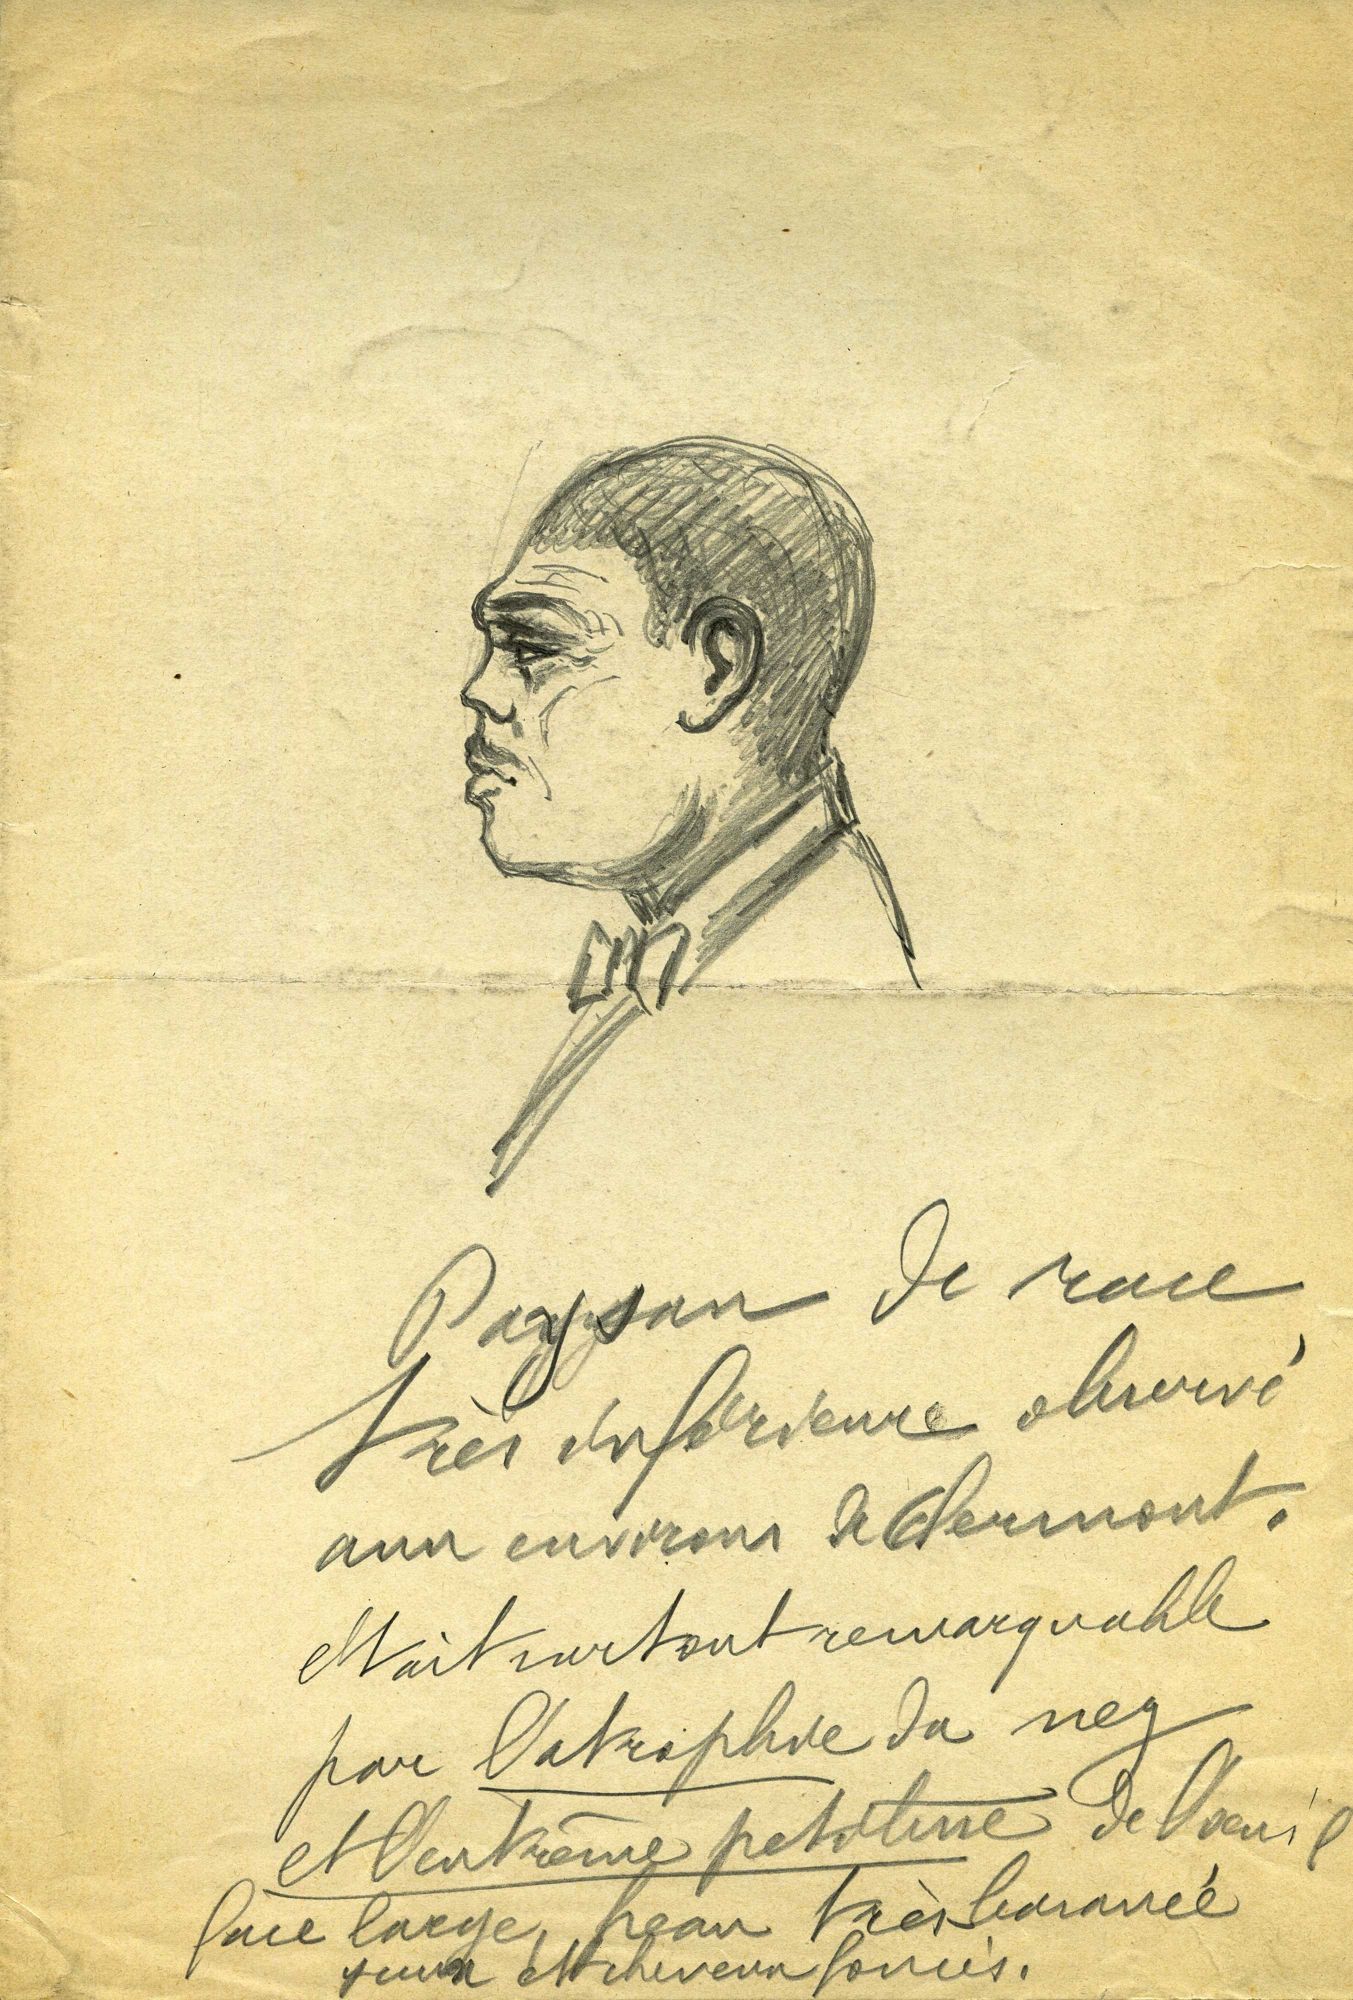 Paysan de race
très inférieure observé
aux environs de Clermont.
était surtout remarquable
par l'atrophie du nez
et l'extrême petitesse de l'oeuil
face large, peau très basanée
yeux et cheveux foncés.